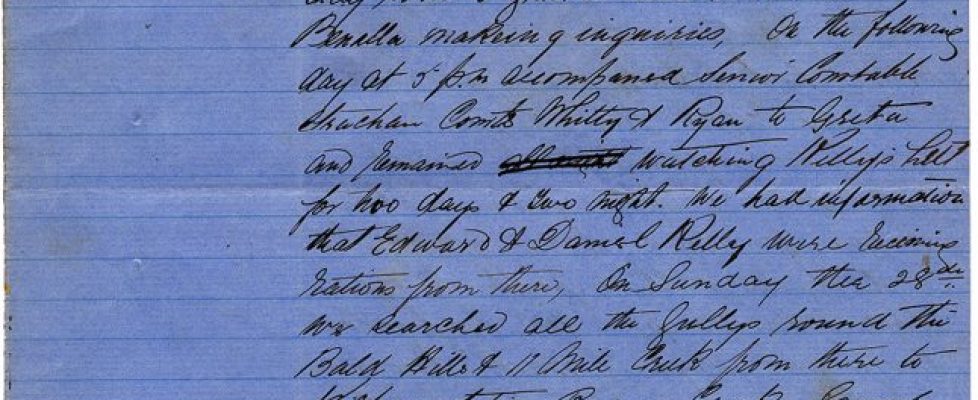 Benalla makeing inquiries, On the following
day at 5 p.m accompaned Senior Constable
Strachan Consts Whitty & Ryan to Greta
and remained watching Kellys hut
for two days & two night. We had information
that Edward & Daniel Kelly were receiving
rations from there, On Sunday the 28th
we searched all the gullys round the
Bald Hills & 11 Mile Creek from there to